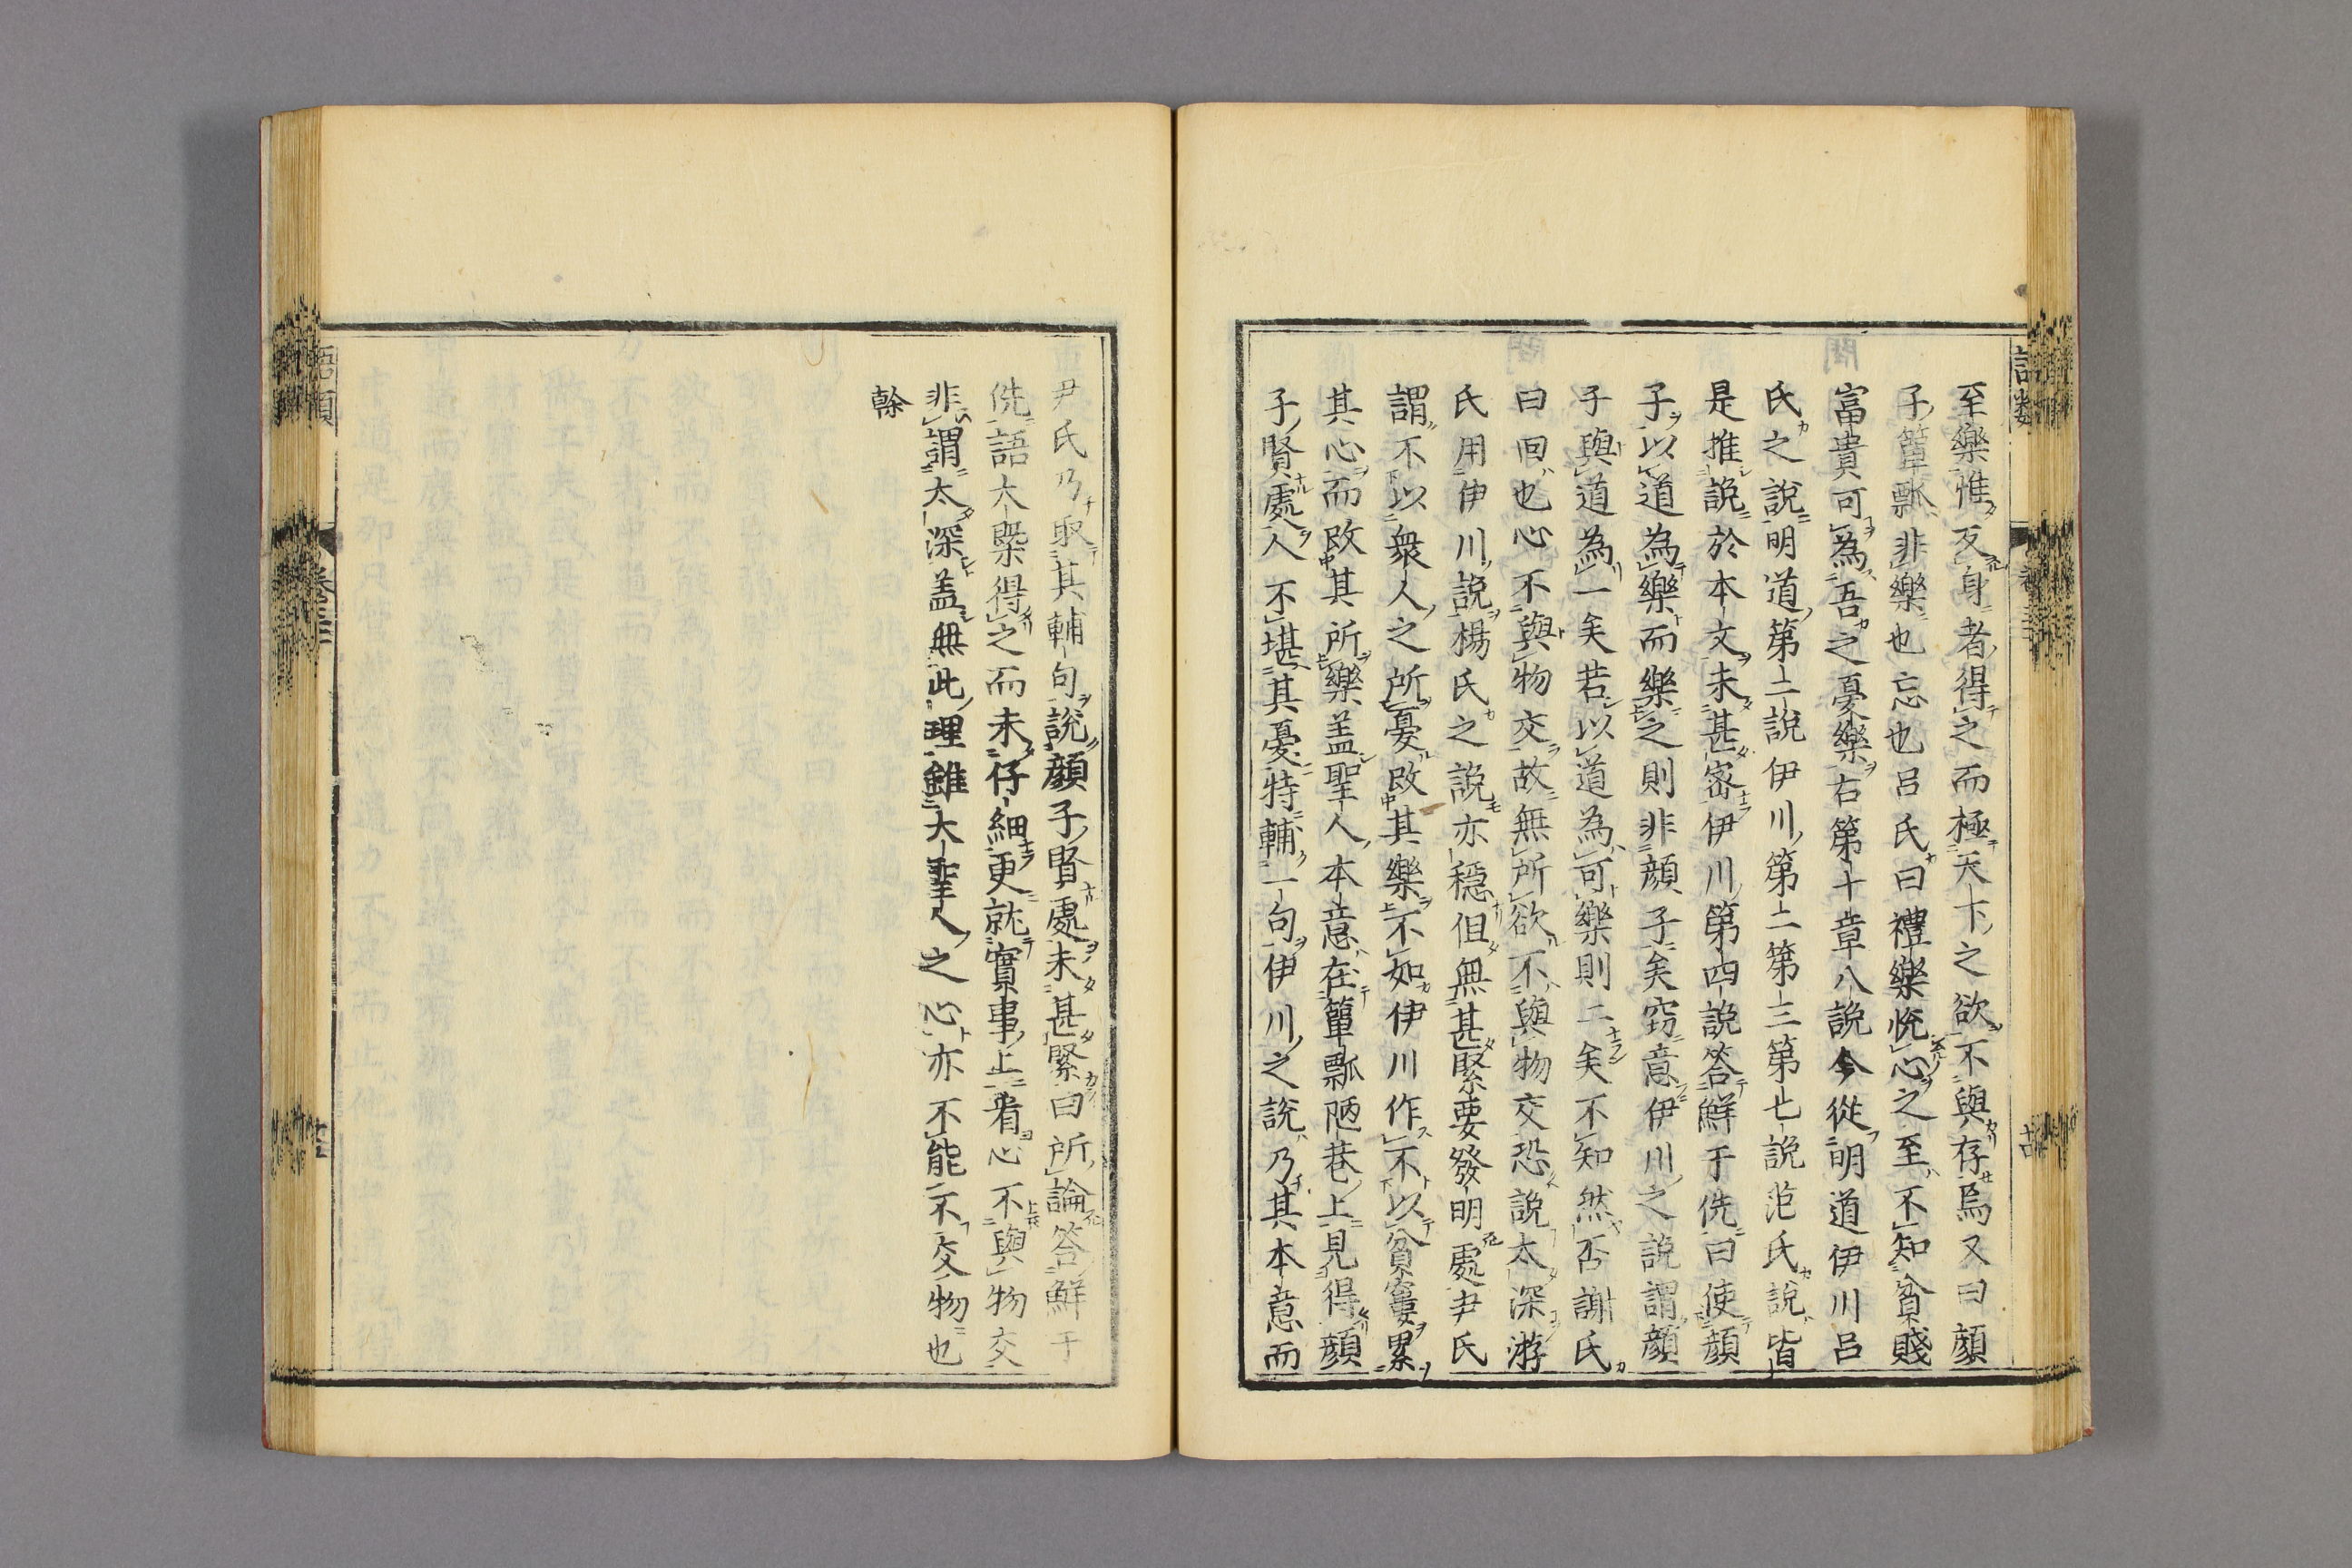 至樂惟反身者得之而極天下之欲不與存焉又曰顔
子簞瓢非樂也忘也呂氏曰禮樂悅心之至不知貧賤
富貴可為吾之憂樂右第十章八說今從明道伊川呂
氏之說明道第二說伊川第二第三第七說范氏說皆
是推說於本文未甚密伊川第四說答鮮于侁曰使顔
子以道為樂而樂之則非顔子矣窃意伊川之說謂顔
子與道為一矣若以道為可樂則二矣不知然否謝氏
曰回也心不與物交故無所欲不與物交恐說太深游
氏用伊川說楊氏之說亦穩但無甚緊要發明處尹氏
謂不以衆人之所憂改其樂不如伊川作不以貧窶累
其心而改其所樂盖聖人本意在簞瓢陋巷上見得顔
子賢處人不堪其憂特輔一句伊川之說乃其本意而
尹氏乃取其輔句說顔子賢處未甚緊曰所論答鮮于
侁語大槩得之而未仔細更就實事上看心不與物交
非謂太深盖無此理雖大聖人之心亦不能不交物也
榦